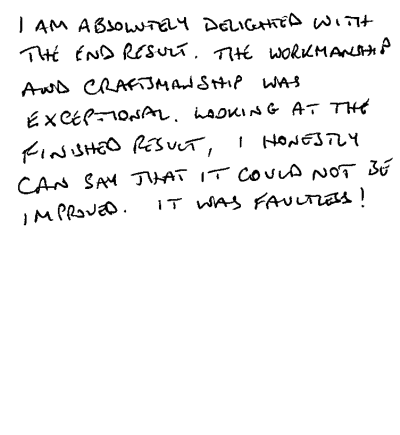 I AM ABSOLUTELY DELIGHTED WITH
THE END RESULT. THE WORKMANSHIP
AND CRAFTSMANSHIP WAS
EXCEPTIONAL. LOOKING AT THE
FINISHED RESULT, I HONESTLY
CAN SAY THAT IT COULD NOT BE
IMPROVED. IT WAS FAULTLESS!